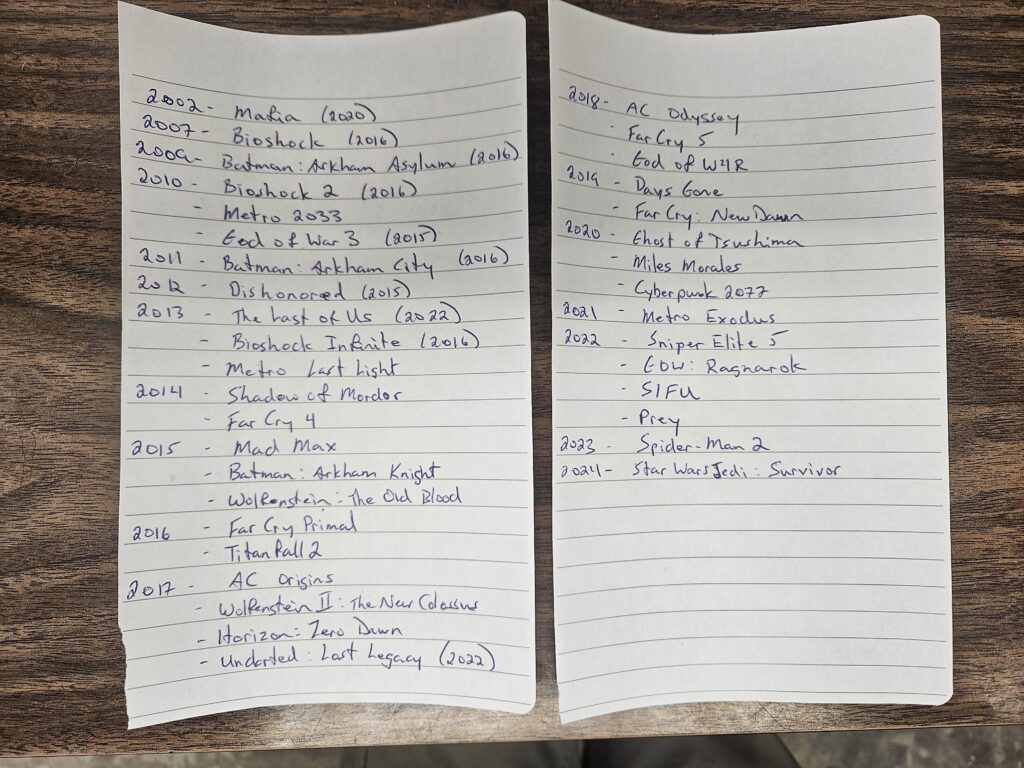 2002 - Mafia (2020)
2007 - Bioshock (2016)
2009 - Batman: Arkham Asylum (2016)
2010 - Bioshock 2 (2016)
- Metro 2033
- God of War 3 (2015)
2011 - Batman: Arkham City (2016)
2012 - Dishonored (2015)
2013 - The Last of Us (2022)
- Bioshock Infinite (2016)
- Metro Last Light
2014 - Shadow of Mordor
- Far Cry 4
2015 - Mad Max
- Batman: Arkham Knight
- Wolfenstein: The Old Blood
2016 - Far Cry Primal
- Titanfall 2
2017 - AC Origins
- Wolfenstein II: The New Colossus
- Horizon: Zero Dawn
- Uncharted: Lost Legacy (2022)
2018 - AC Odyssey
- Far Cry 5
- God of W4R
2019 - Days Gone
- Far Cry: New Dawn
2020 - Ghost of Tsushima
- Miles Morales
- Cyberpunk 2077
2021 - Metro Exodus
2022 - Sniper Elite 5
- GOW: Ragnarok
- SIFU
- Prey
2023 - Spider-Man 2
2024 - Star Wars Jedi: Survivor